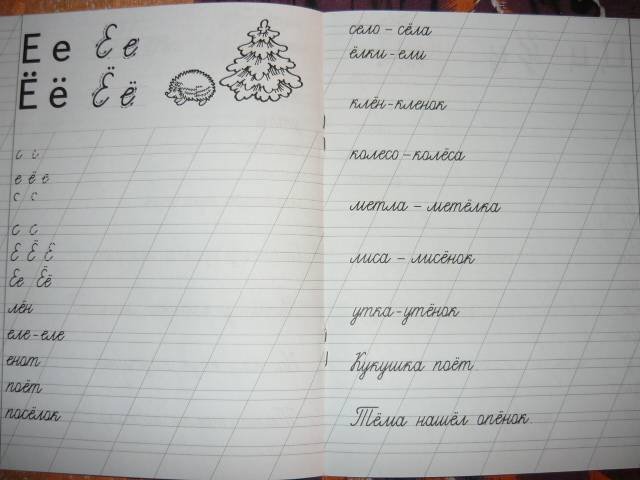 Е е Е е
Ё ё Ё ё
с с
е ё ё
с с
С С
Е Ё Ё
Ее Ёё
лён
еле-еле
енот
поёт
посёлок
село – сёла
ёлки - ели
клён-кленок
колесо – колёса
метла – метёлка
лиса – лисёнок
утка-утёнок
Кукушка поёт.
Тёма нашёл опёнок.